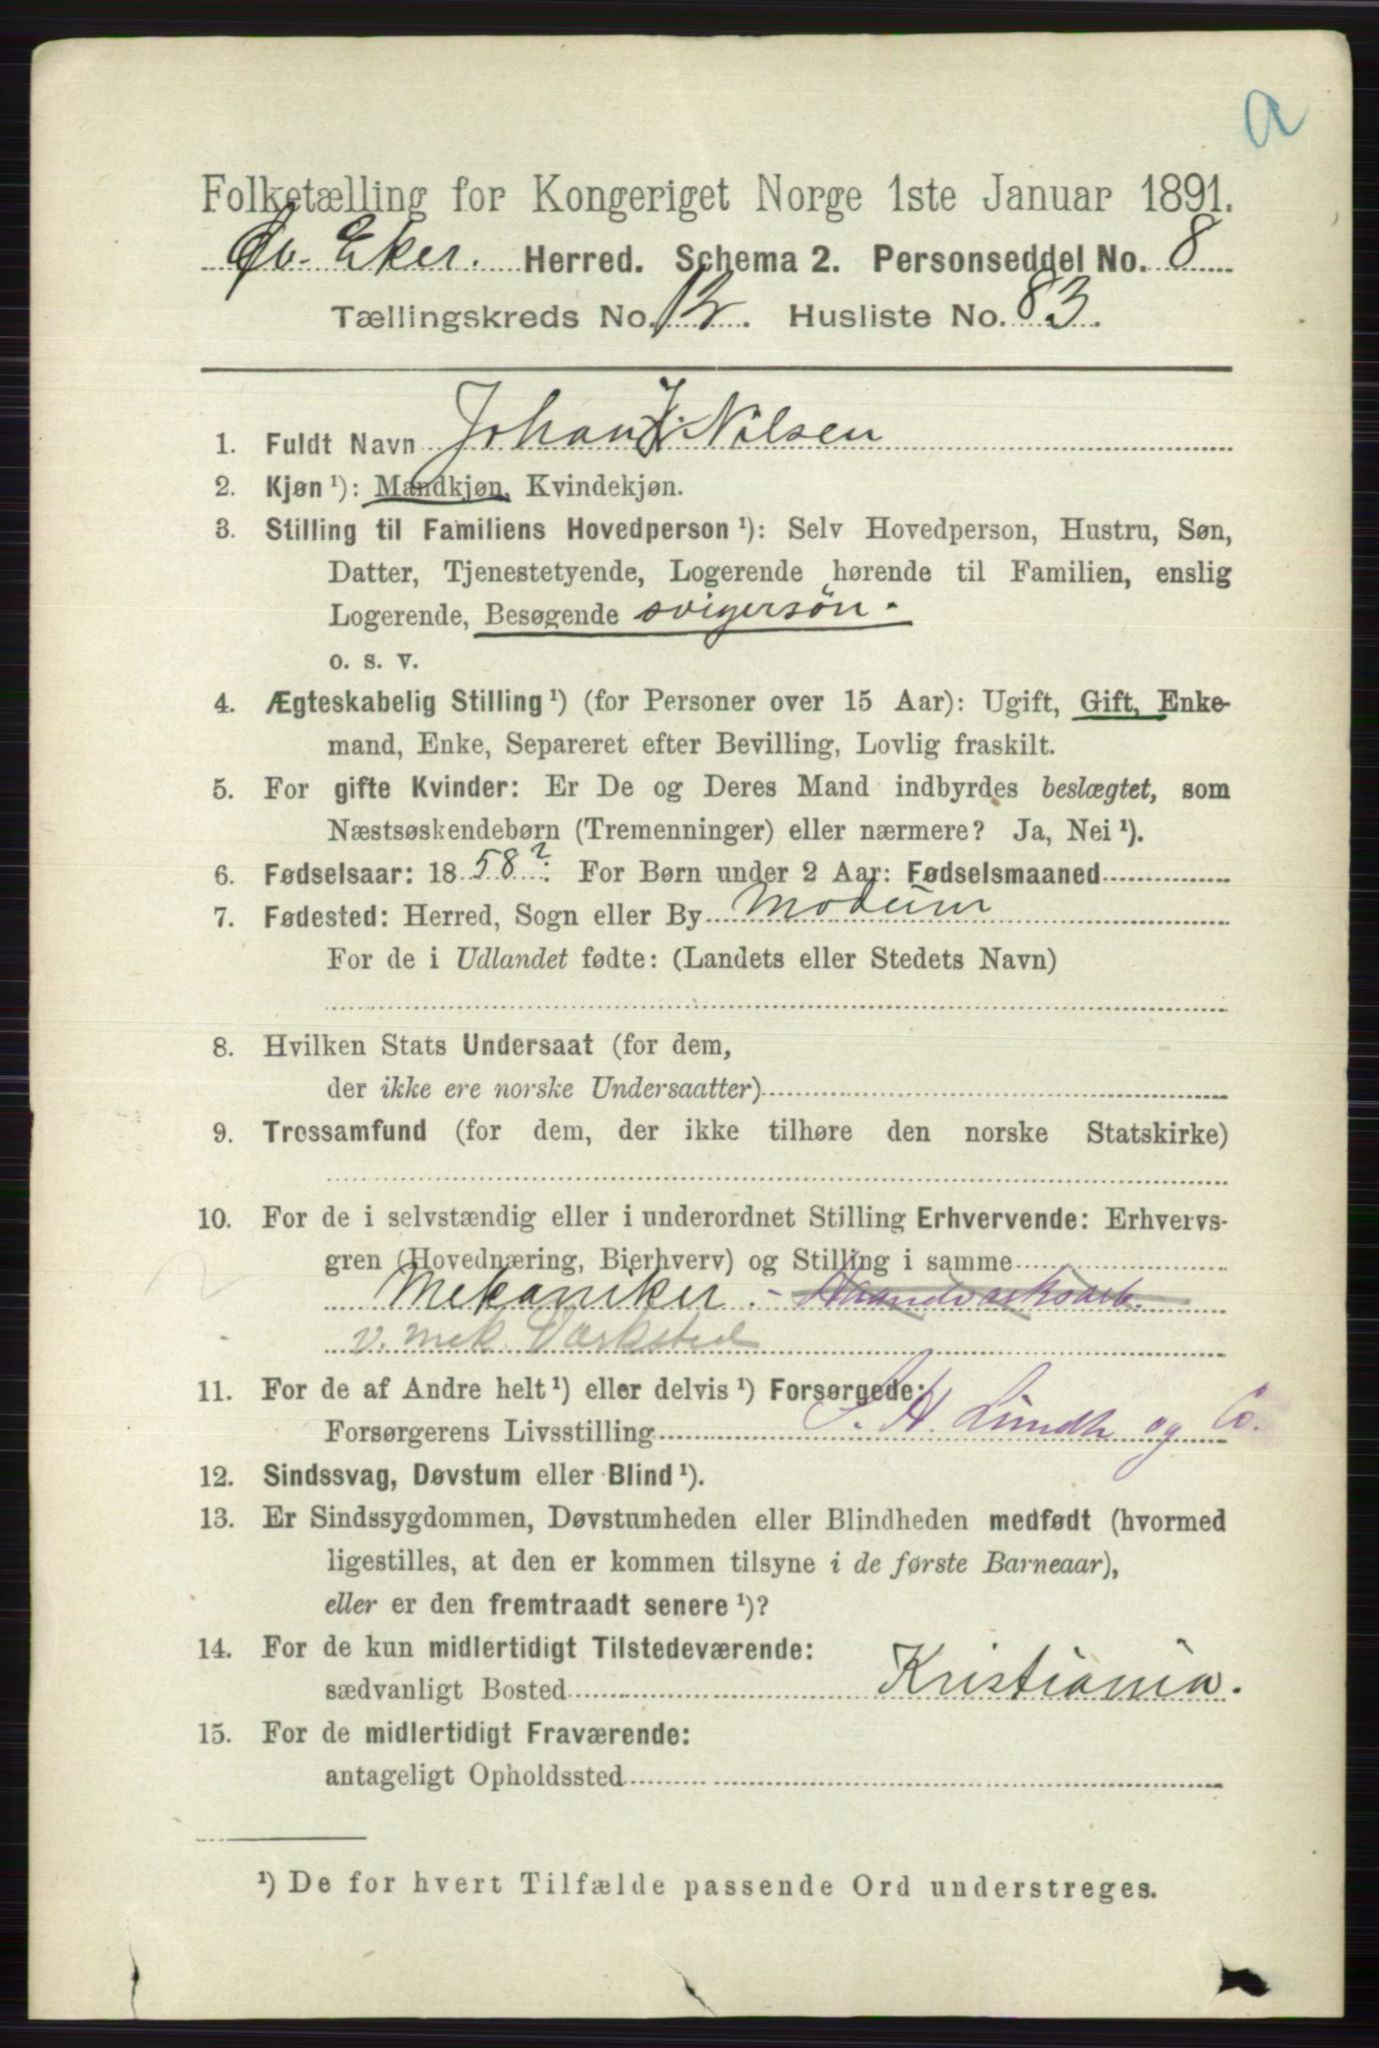 a
Folketælling for Kongeriget Norge 1ste Januar 1891.
Øv. Eker. Herred. Schema 2. Personseddel No. 8
Tællingskreds No. 12. Husliste No. 83.
1. Fuldt Navn Johan Nilsen
2. Kjøn ¹): Mandkjøn, Kvindekjøn.
3. Stilling til Familiens Hovedperson ¹): Selv Hovedperson, Hustru, Søn,
Datter, Tjenestetyende, Logerende hørende til Familien, enslig
Logerende, Besøgende svigersøn.
o. s. v.
4. Ægteskabelig Stilling ¹) (for Personer over 15 Aar): Ugift, Gift, Enke-
mand, Enke, Separeret efter Bevilling, Lovlig fraskilt.
5. For gifte Kvinder: Er De og Deres Mand indbyrdes beslægtet, som
Næstsøskendebørn (Tremenninger) eller nærmere? Ja, Nei ¹).
6. Fødselsaar: 1858? For Børn under 2 Aar: Fødselsmaaned
7. Fødested: Herred, Sogn eller By Modum
For de i Udlandet fødte: (Landets eller Stedets Navn)
8. Hvilken Stats Undersaat (for dem,
der ikke ere norske Undersaatter)
9. Trossamfund (for dem, der ikke tilhøre den norske Statskirke)
10. For de i selvstændig eller i underordnet Stilling Erhvervende: Erhvervs-
gren (Hovednæring, Bierhverv) og Stilling i samme
Mekaniker. - Haandværksarb.
v. mek. Værksted
11. For de af Andre helt ¹) eller delvis ¹) Forsørgede:
Forsørgerens Livsstilling S. H. Lundh og Co.
12. Sindssvag, Døvstum eller Blind ¹).
13. Er Sindssygdommen, Døvstumheden eller Blindheden medfødt (hvormed
ligestilles, at den er kommen tilsyne i de første Barneaar),
eller er den fremtraadt senere ¹)?
14. For de kun midlertidigt Tilstedeværende:
sædvanligt Bosted Kristiania.
15. For de midlertidigt Fraværende:
antageligt Opholdssted
¹) De for hvert Tilfælde passende Ord understreges.